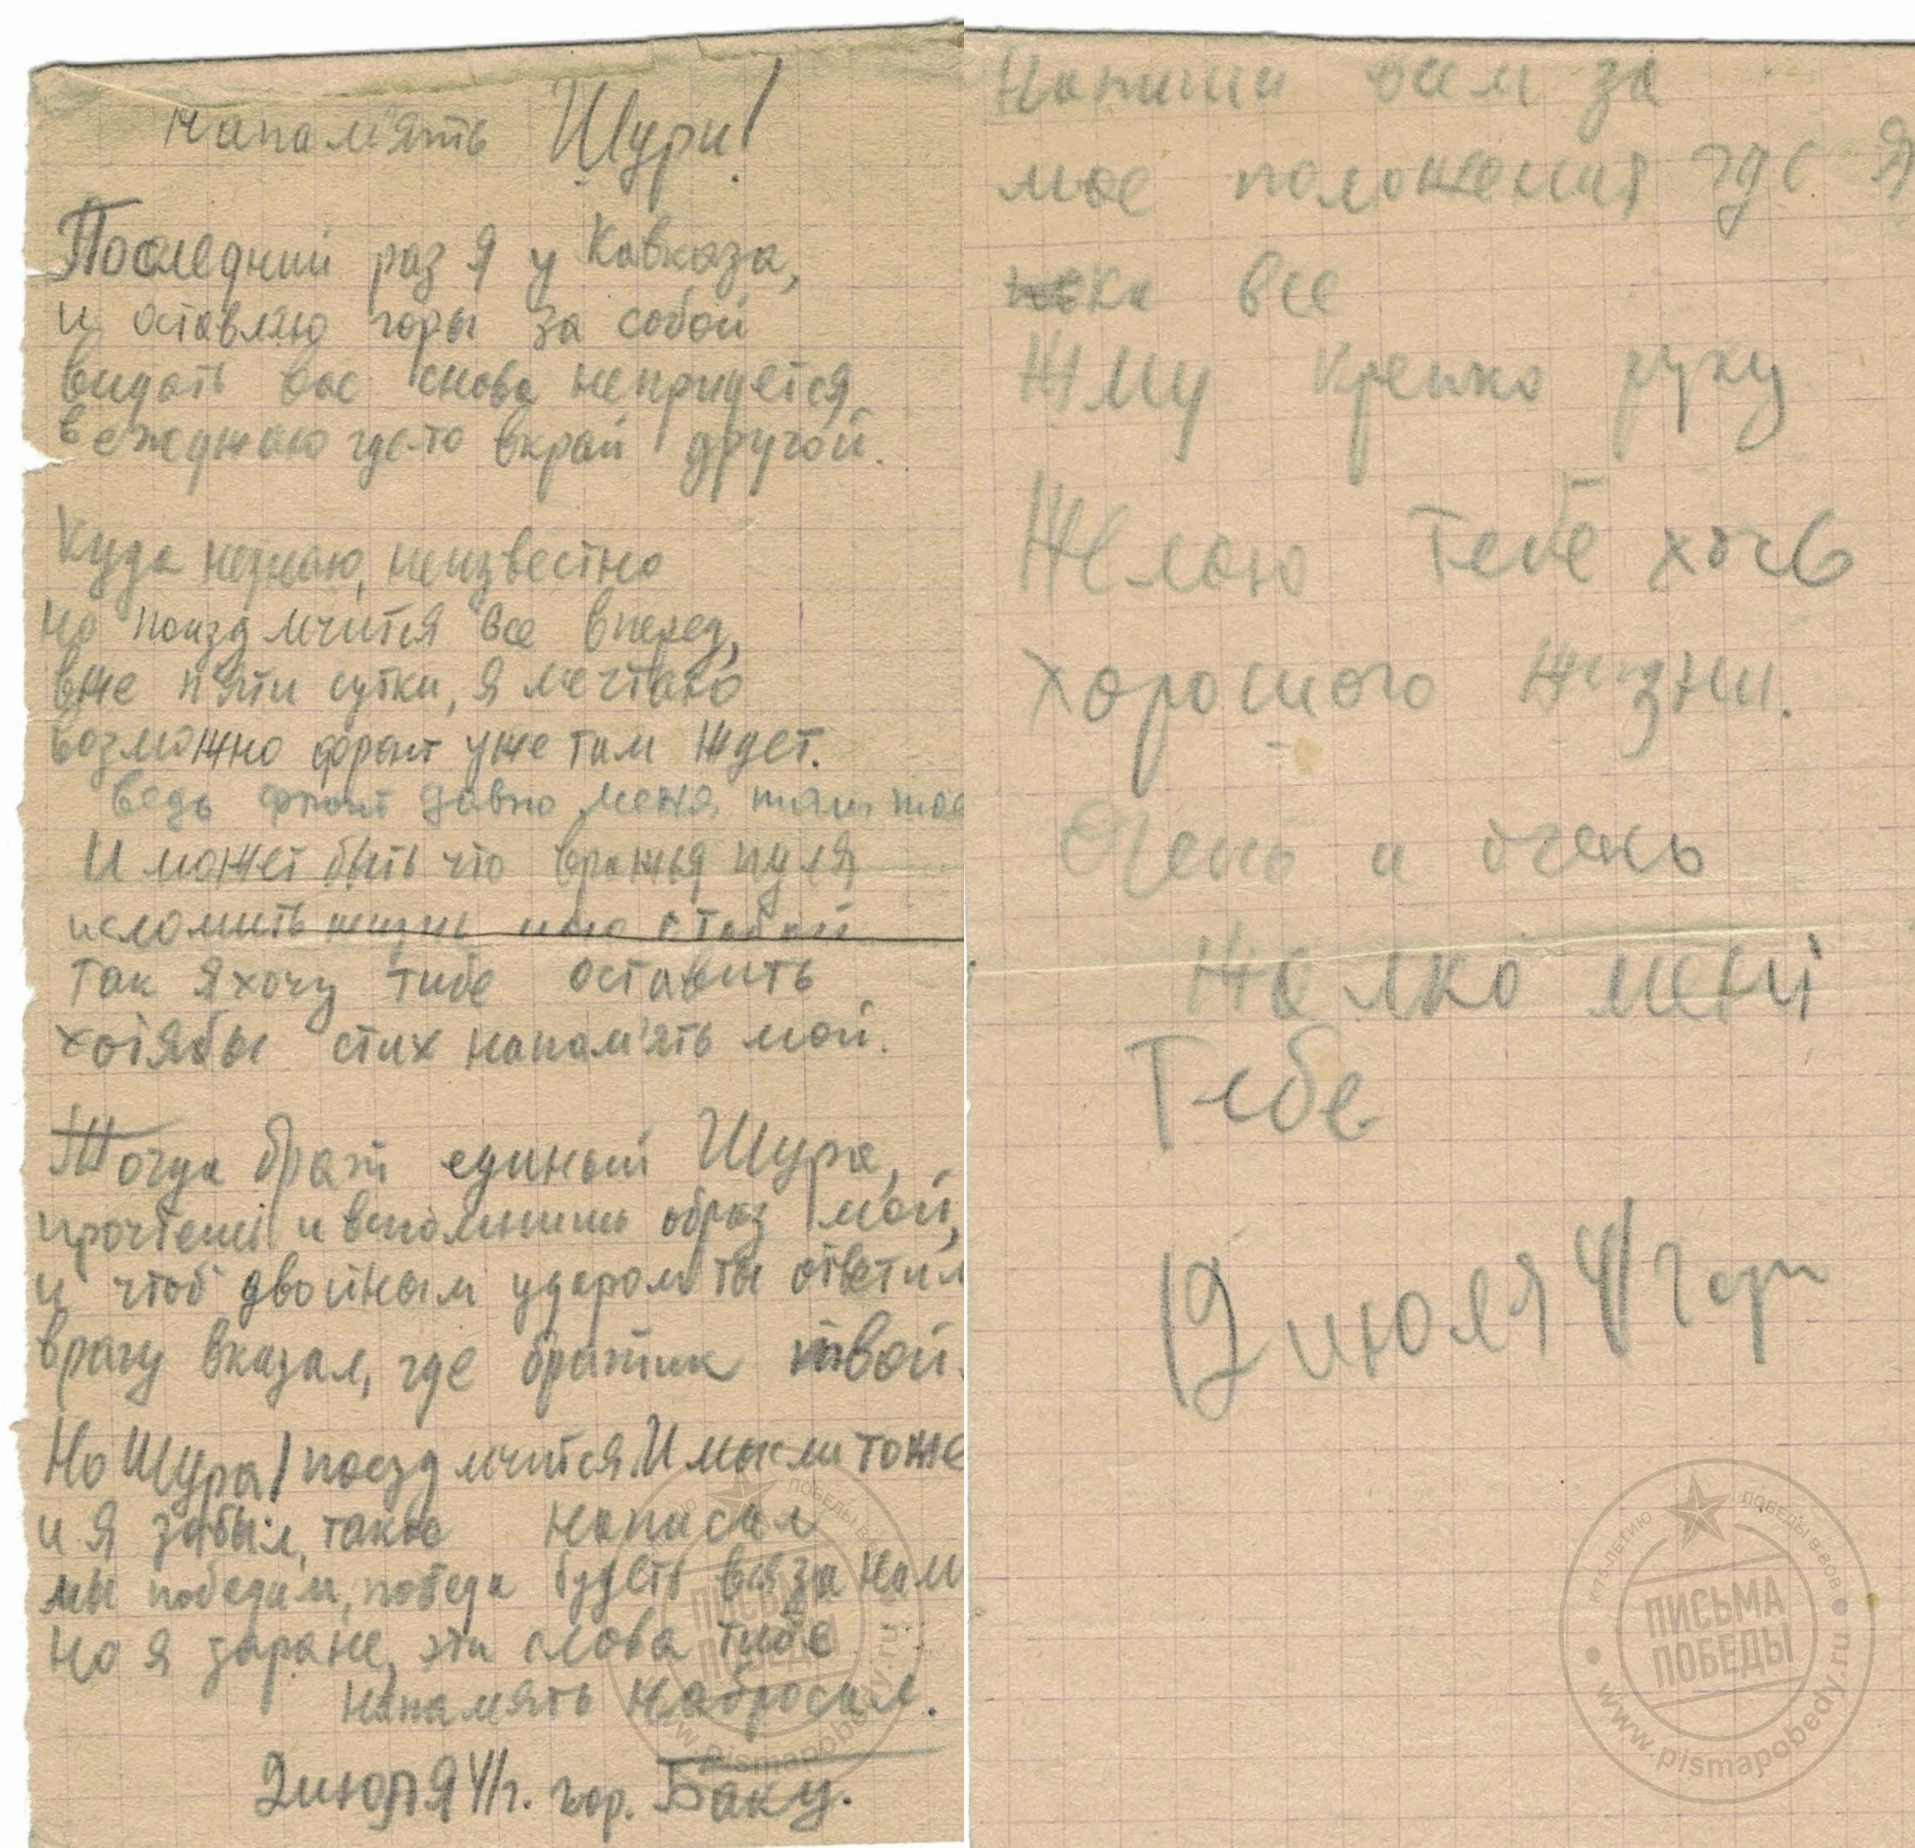 напам'ять Шури!
Последний раз я у Кавказа,
и оставлею горы за собой
видать вас снова непридется
вежеднаю где-то вкрай другой.
Куда незнаю, неизвестно
но поизд мчится все вперед,
вже п'яти сутки, я мечтаю
возможно фронт уже там ждет.
Ведь фронт давно меня там
И может быть что вражья пуля
исломить жизнь мою стобой
Так я хочу тибе оставить
хотябы стих напам'ять мой.
Тогда брат единый Шура,
прочтешь и вспомнишь образ мой,
и чтоб двойным ударом ты ответил
врагу вказал, где братик твой.
Но Шура! поезд мчится. И мысли тоже
и я забыл, такое написал
мы победим, победа будеть все за нам
но я заране, эти слова тибе
напамять набросал.
2 июля 41г. гор. Баку.
Напиши всем за
мое положения где я
пока все
Жму крепко руку
Желаю тебе хочь
хорошого жизни.
Очень и очень
Жалко мені
Тебе
12 июля 41 г
К 75-ЛЕТИЮ ПОБЕДЫ В ВОВ
ПИСЬМА
ПОБЕДЫ
www.pismapobedy.ru
К 75-ЛЕТИЮ ПОБЕДЫ В ВОВ
ПИСЬМА
ПОБЕДЫ
www.pismapobedy.ru